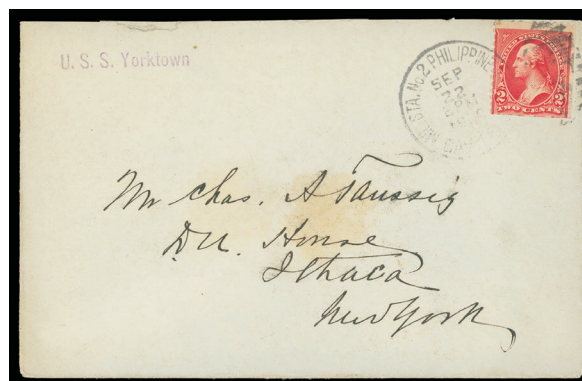 U. S. S. Yorktown
STA. No. 2 PHILIPPINE
SEP
2 TWO CENTS 2
Mr Chas. A Taussig
D.U. House
Ithaca
New York